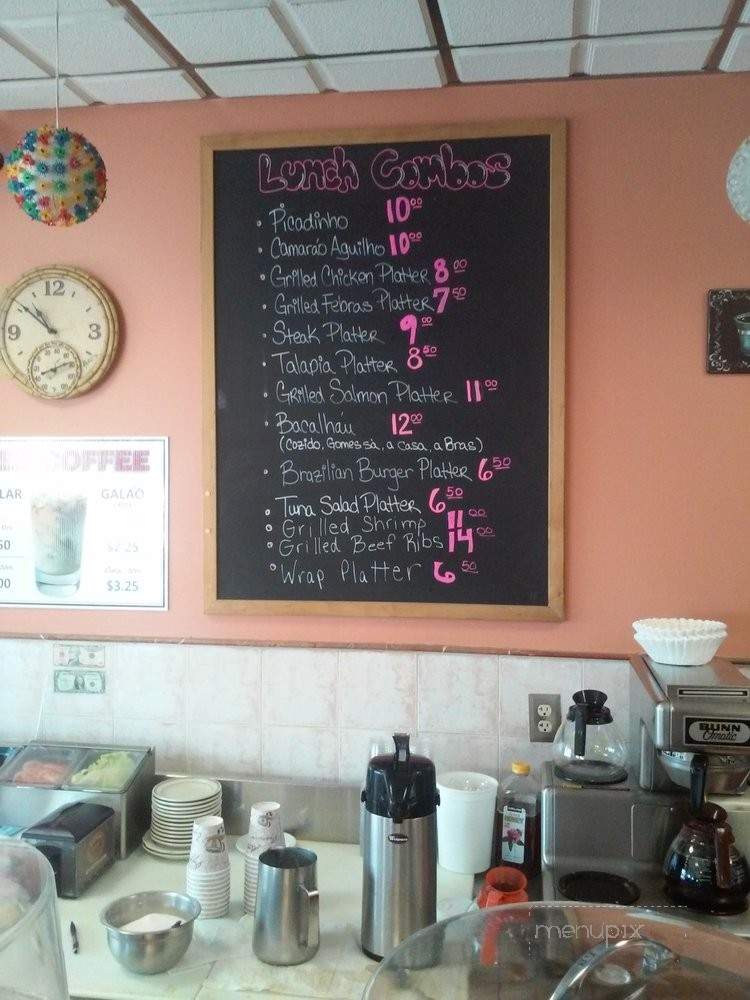 Lunch Combos
Picadinho 10 00
Camarão Aguilho 10 00
Grilled Chicken Platter 8 00
Grilled Febras Platter 7 50
Steak Platter 9 00
Talapia Platter 8 50
Grilled Salmon Platter 11 00
Bacalhau 12 00
(Cozido, Gomes sà, a casa, a Bras)
Brazilian Burger Platter 6 50
Tuna Salad Platter 6 50
Grilled Shrimp 11 00
Grilled Beef Ribs 14 00
Wrap Platter 6 50
12
9
3
COFFEE
LAR GALAO
50 $2.25
00 $3.25
BUNN
Omatic
menupix